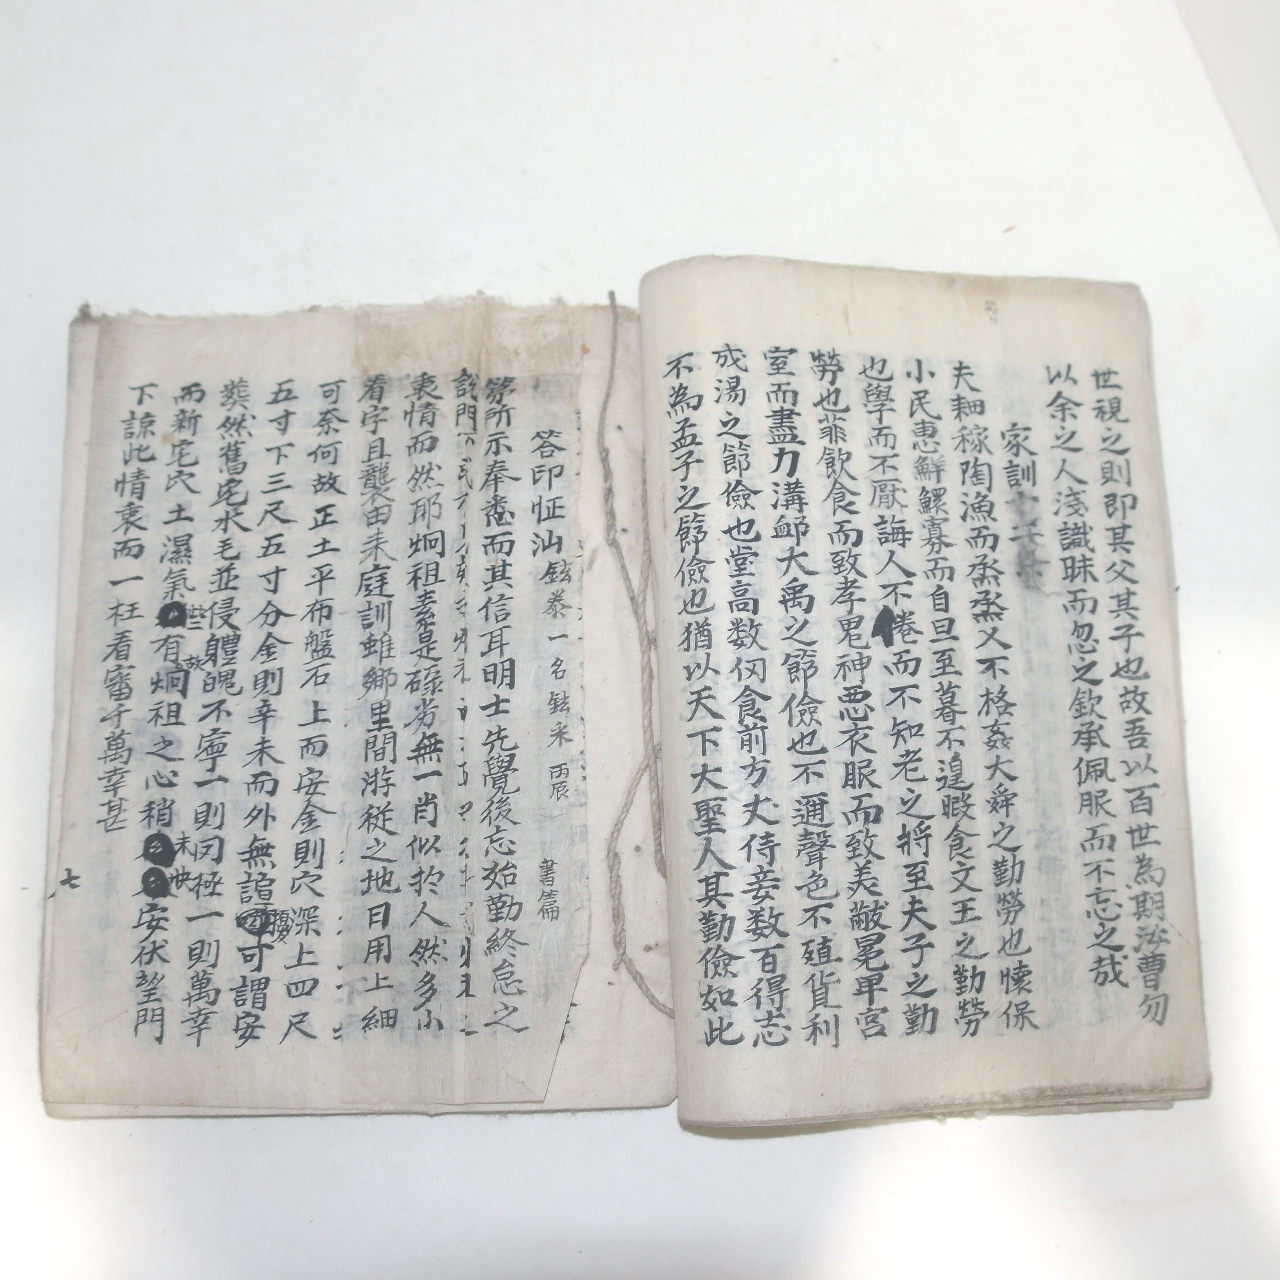 世視之則即其父其子也故吾以百世為期汝曹勿
以余之人淺識昧而忽之欽承佩服而不忘之哉
家訓
夫耕稼陶漁而烝烝乂不格姦大舜之勤勞也懐保
小民惠鮮鰥寡而自旦至暮不遑暇食文王之勤勞
也學而不厭誨人不倦而不知老之將至夫子之勤
勞也菲飲食而致孝鬼神惡衣服而致美黻冕卑宮
室而盡力溝洫大禹之節儉也不邇聲色不殖貨利
成湯之節儉也堂高数仞食前方丈侍妾数百得志
不為孟子之節儉也猶以天下大聖人其勤儉如此
答印怔汕鉉泰一名鉉采丙辰 書篇
所示奉悉而其信耳明士先覺後忘始勤終怠之
說門
衷情而然耶炯祖素是碌劣無一肖似於人然多小
看字且襲由来庭訓雖鄉里間游從之地日用上細
可奈何故正土平布盤石上而安金則穴深上四尺
五寸下三尺五寸分金則辛未而外無 可謂安
葬然舊宅水毛並侵體魄不寧一則罔極一則萬幸
而新宅穴土濕氣些有故炯祖之心稍未快安伏望門
下諒此情衷而一枉看審千萬幸甚
七